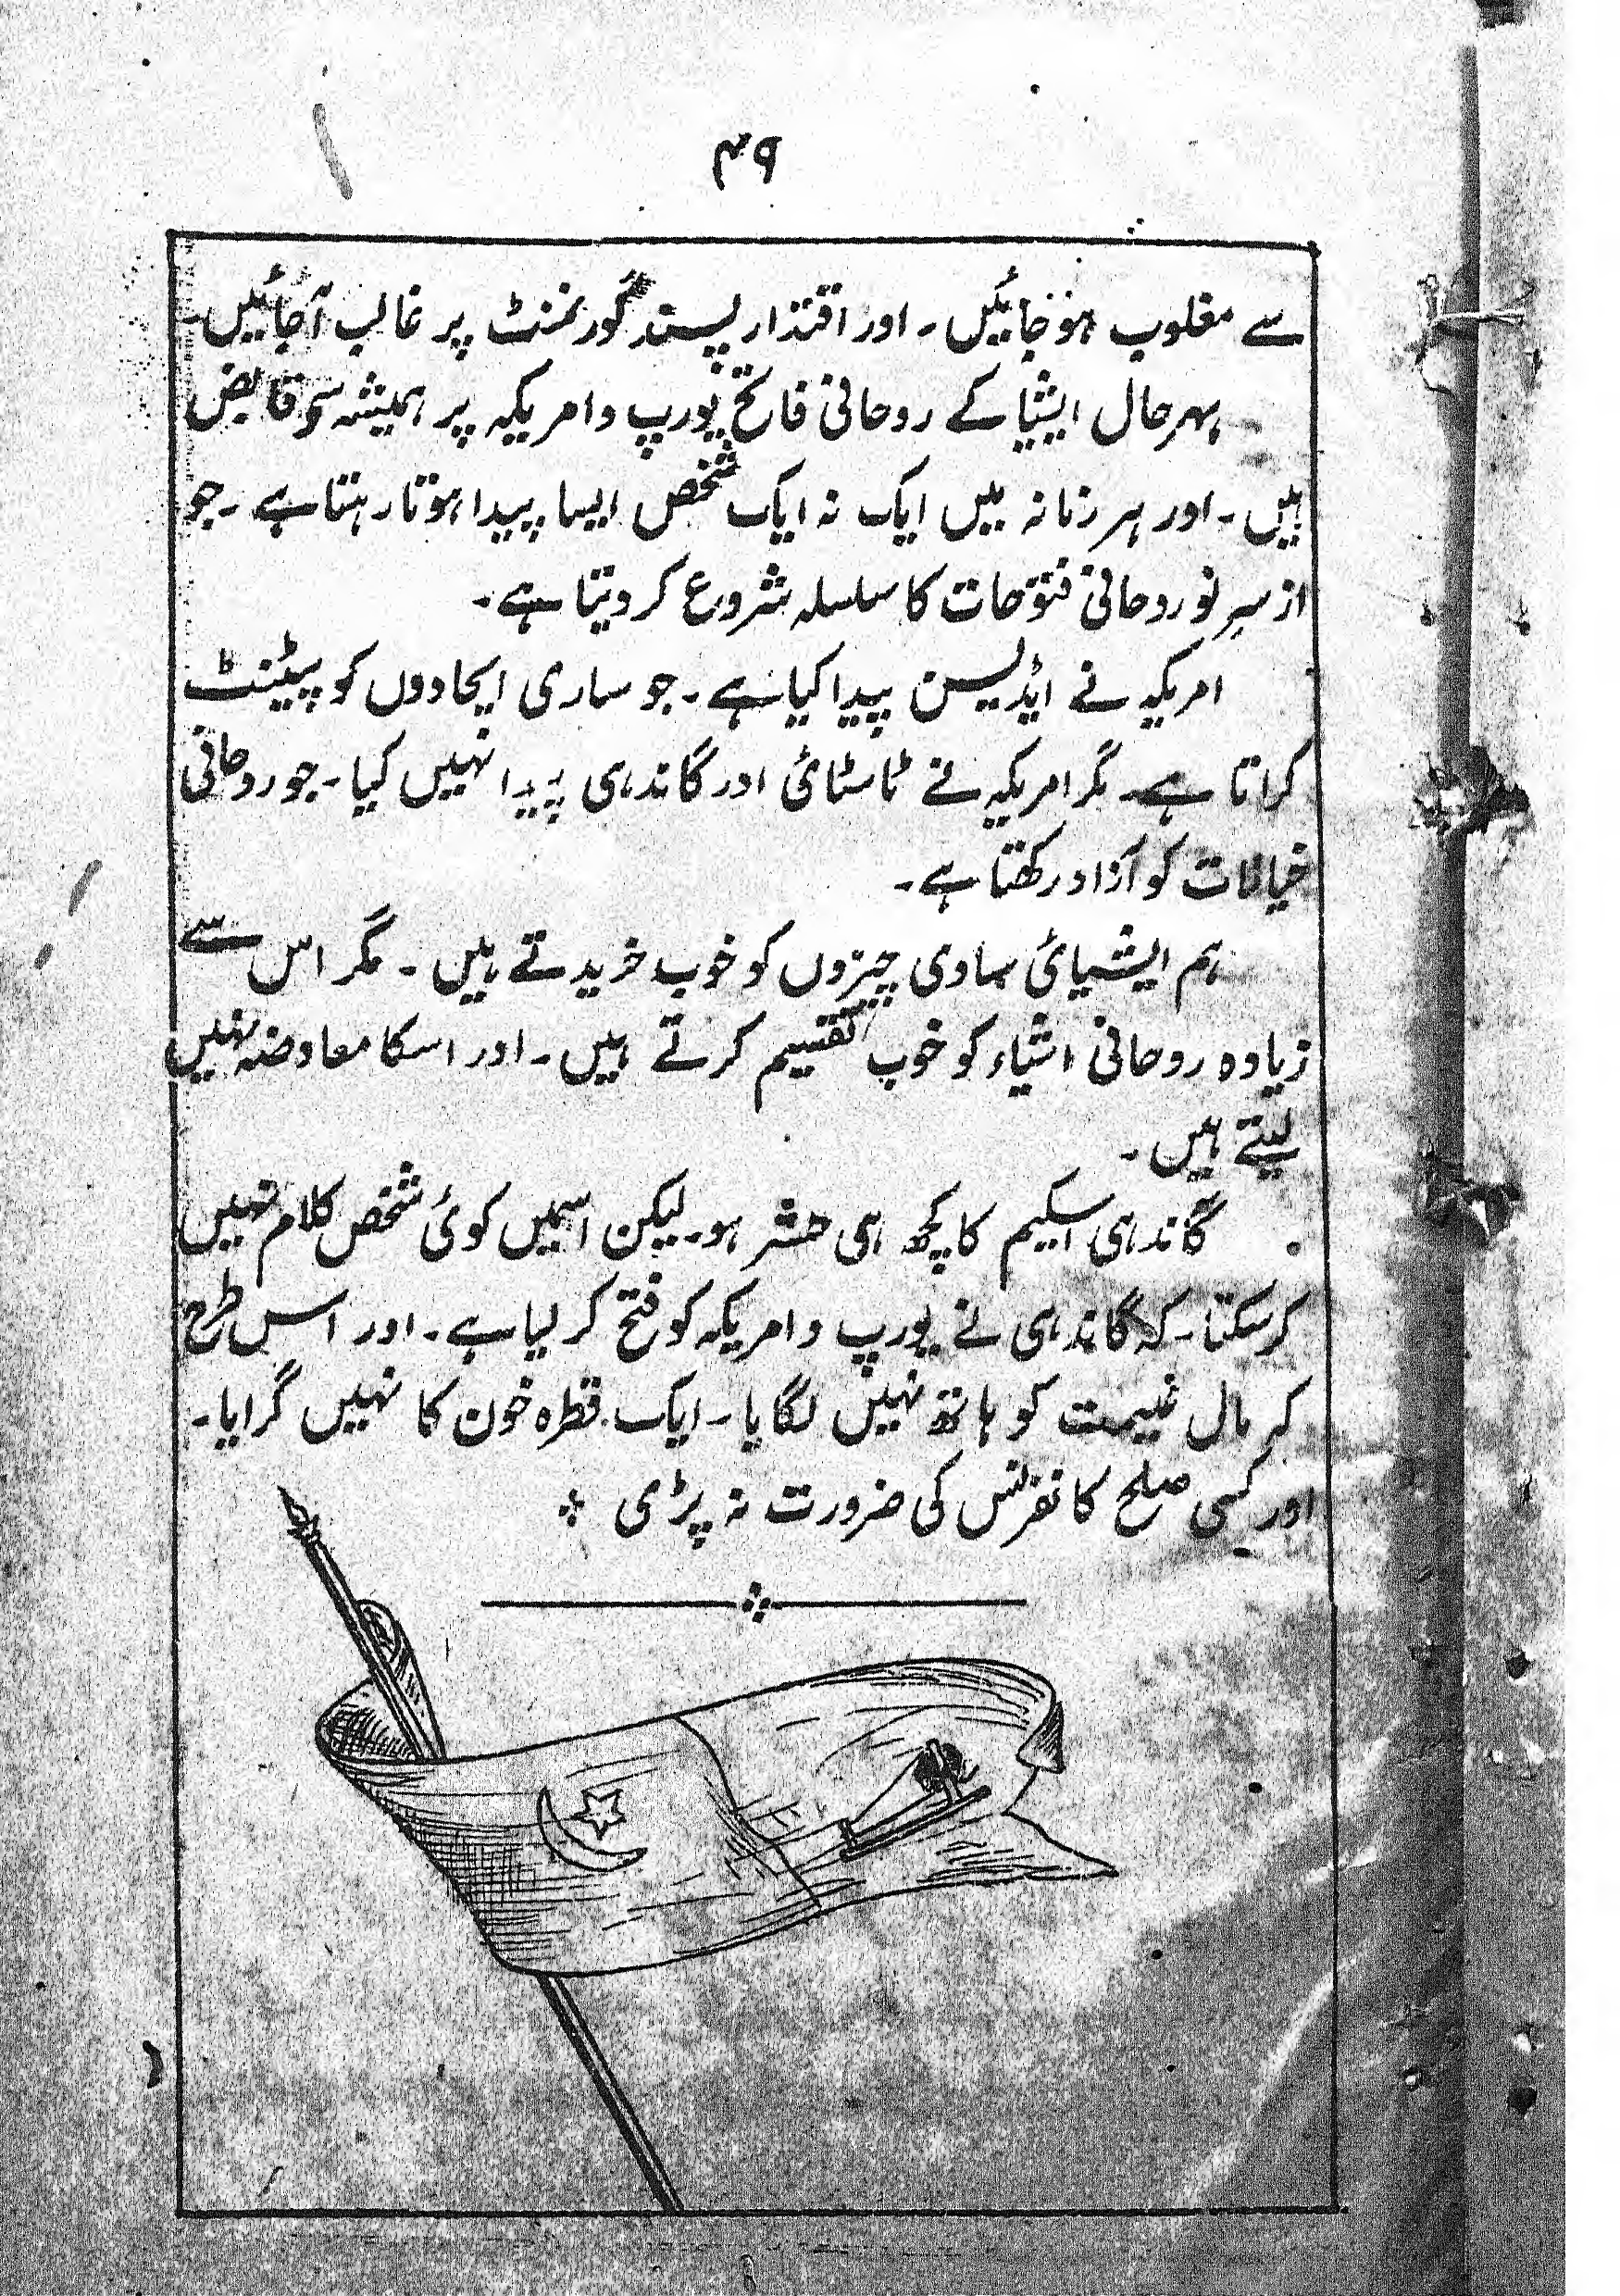 ۴۹
سے مغلوب ہو جائیں۔ اور اقتدار پسند گورنمنٹ پر غالب آجائیں۔
بہرحال ایشیا کے روحانی فاتح یورپ و امریکہ پر ہمیشہ سے قابض
ہیں۔ اور ہر زمانہ میں ایک نہ ایک شخص ایسا پیدا ہوتا رہتا ہے۔ جو
از سرِ نو روحانی فتوحات کا سلسلہ شروع کر دیتا ہے۔
امریکہ نے ایڈیسن پیدا کیا ہے۔ جو ساری ایجادوں کو پیٹنٹ
کراتا ہے۔ مگر امریکہ نے ٹالسٹائی اور گاندہی پیدا نہیں کیا۔ جو روحانی
خیالات کو آزاد رکھتا ہے۔
ہم ایشیائی مادی چیزوں کو خوب خریدتے ہیں۔ مگر اس سے
زیادہ روحانی اشیاء کو خوب تقسیم کرتے ہیں۔ اور اسکا معاوضہ نہیں
لیتے ہیں۔
گاندہی اسکیم کا کچھ ہی حشر ہو۔ لیکن اسمیں کوئی شخص کلام نہیں
کرسکتا۔ کہ گاندہی نے یورپ و امریکہ کو فتح کر لیا ہے۔ اور اس طرح
کہ مال غنیمت کو ہاتھ نہیں لگایا۔ ایک قطرہ خون کا نہیں گرایا۔
اور کسی صلح کانفرنس کی ضرورت نہ پڑی ؞